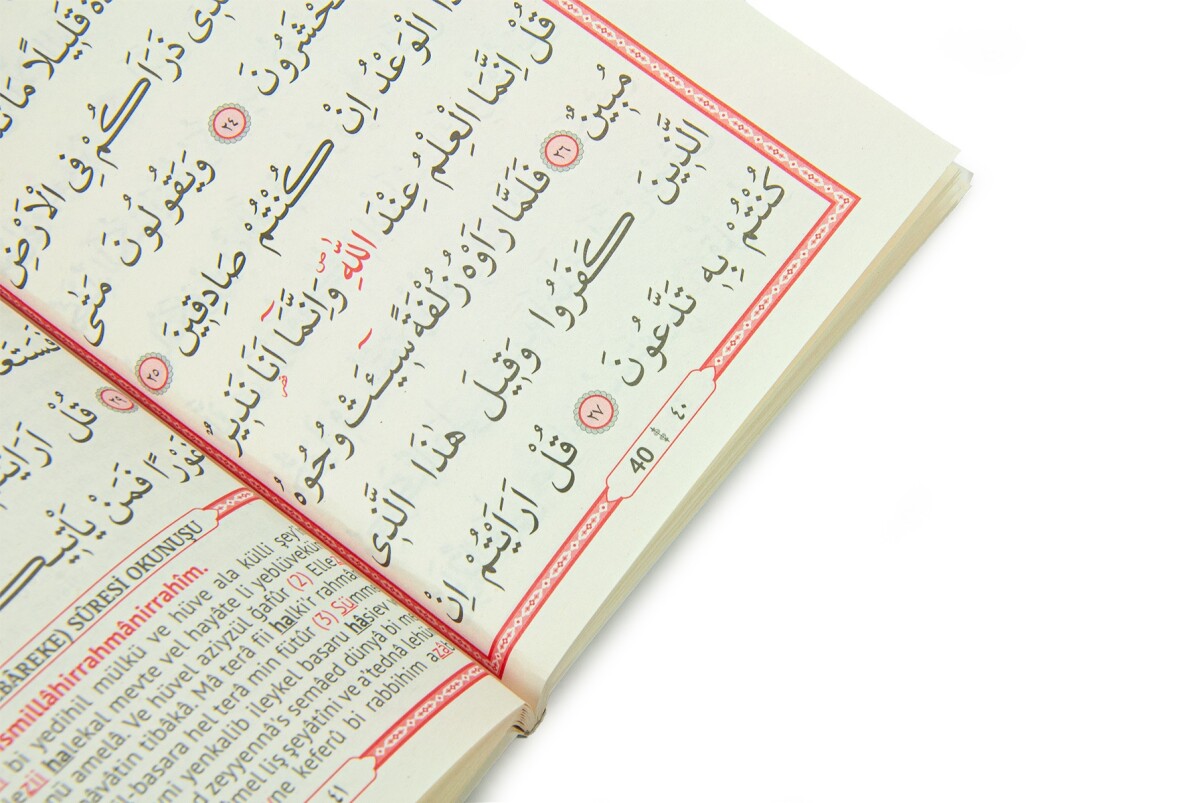 قَلِيلًا مَا
ذَرَاَكُمْ فِى الْاَرْضِ
تُحْشَرُونَ ٢٤ وَيَقُولُونَ مَتٰى
الْوَعْدُ اِنْ كُنْتُمْ صَادِقِينَ ٢٥
قُلْ اِنَّمَا الْعِلْمُ عِنْدَ اللّٰهِ ص وَاِنَّمَٓا اَنَا نَذِيرٌ
مُبِينٌ ٢٦ فَلَمَّا رَاَوْهُ زُلْفَةً سِٓيئَتْ وُجُوهُ
الَّذِينَ كَفَرُوا وَقِيلَ هٰذَا الَّذِى
كُنْتُمْ بِهِ تَدَّعُونَ ٢٧ قُلْ اَرَاَيْتُمْ اِنْ
40 ٤٠
٢٩ قُلْ
فَمَنْ
BÂREKE) SÛRESİ OKUNUŞU
smillâhirrahmânirrahîm.
bi yedihil mülkü ve hüve ala külli şey
halekal mevte vel hayâte li yeblüvekü
amelâ. Ve hüvel aziyzül ğafûr (2) Elle
tibâkâ. Mâ terâ fii halkı'r rahmâ
l-basara hel terâ min fütûr (3) Sümm
yenkalib ileykel basaru hâsiev
zeyyennâ's semâed dünyâ bi me
liş şeyâtîni ve a'tednâ lehü
ne keferû bi rabbihim azâb
٤١